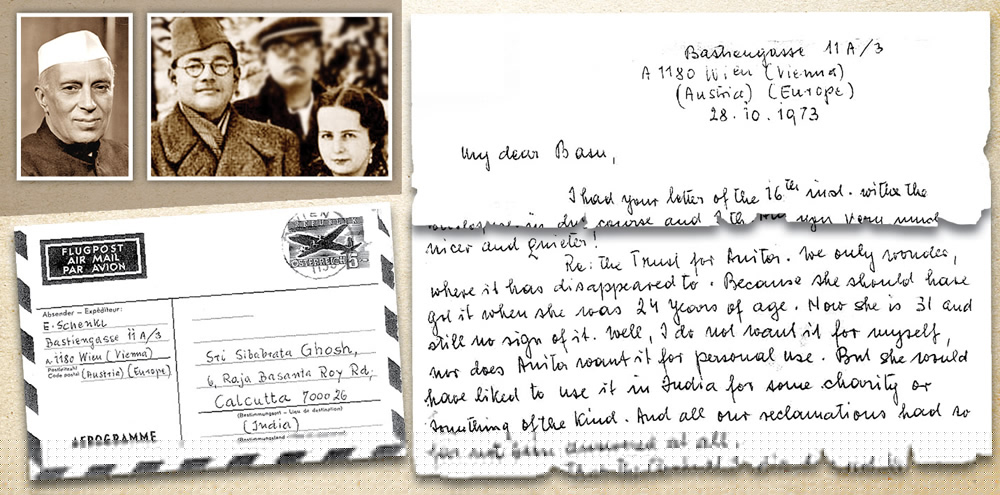 Bastiengasse 11A/3
A 1180 Wien (Vienna)
(Austria) (Europe)
28.10.1973
My dear Basu,
I had your letter of the 16th inst. with the
in due course and I you very much
nicer and quieter!
Re: the Trust for Anita. We only wonder,
where it has disappeared to. Because she should have
got it when she was 24 years of age. Now she is 31 and
still no sign of it. Well, I do not want it for myself,
nor does Anita want it for personal use. But she would
have liked to use it in India for some charity or
something of the kind. And all our reclamations had so
far not been answered at all.
FLUGPOST
AIR MAIL
PAR AVION
WIEN
ÖSTERREICH
Absender – Expéditeur:
E. Schenkl
Bastiengasse 11A/3
A 1180 Wien (Vienna)
Postleitzahl
Code postal (Austria) (Europe)
Sri Sibabrata Ghosh,
6, Raja Basanta Roy Rd,
Calcutta 700026
(Bestimmungsort – Lieu de destination)
(India)
(Bestimmungsland
AEROGRAMME